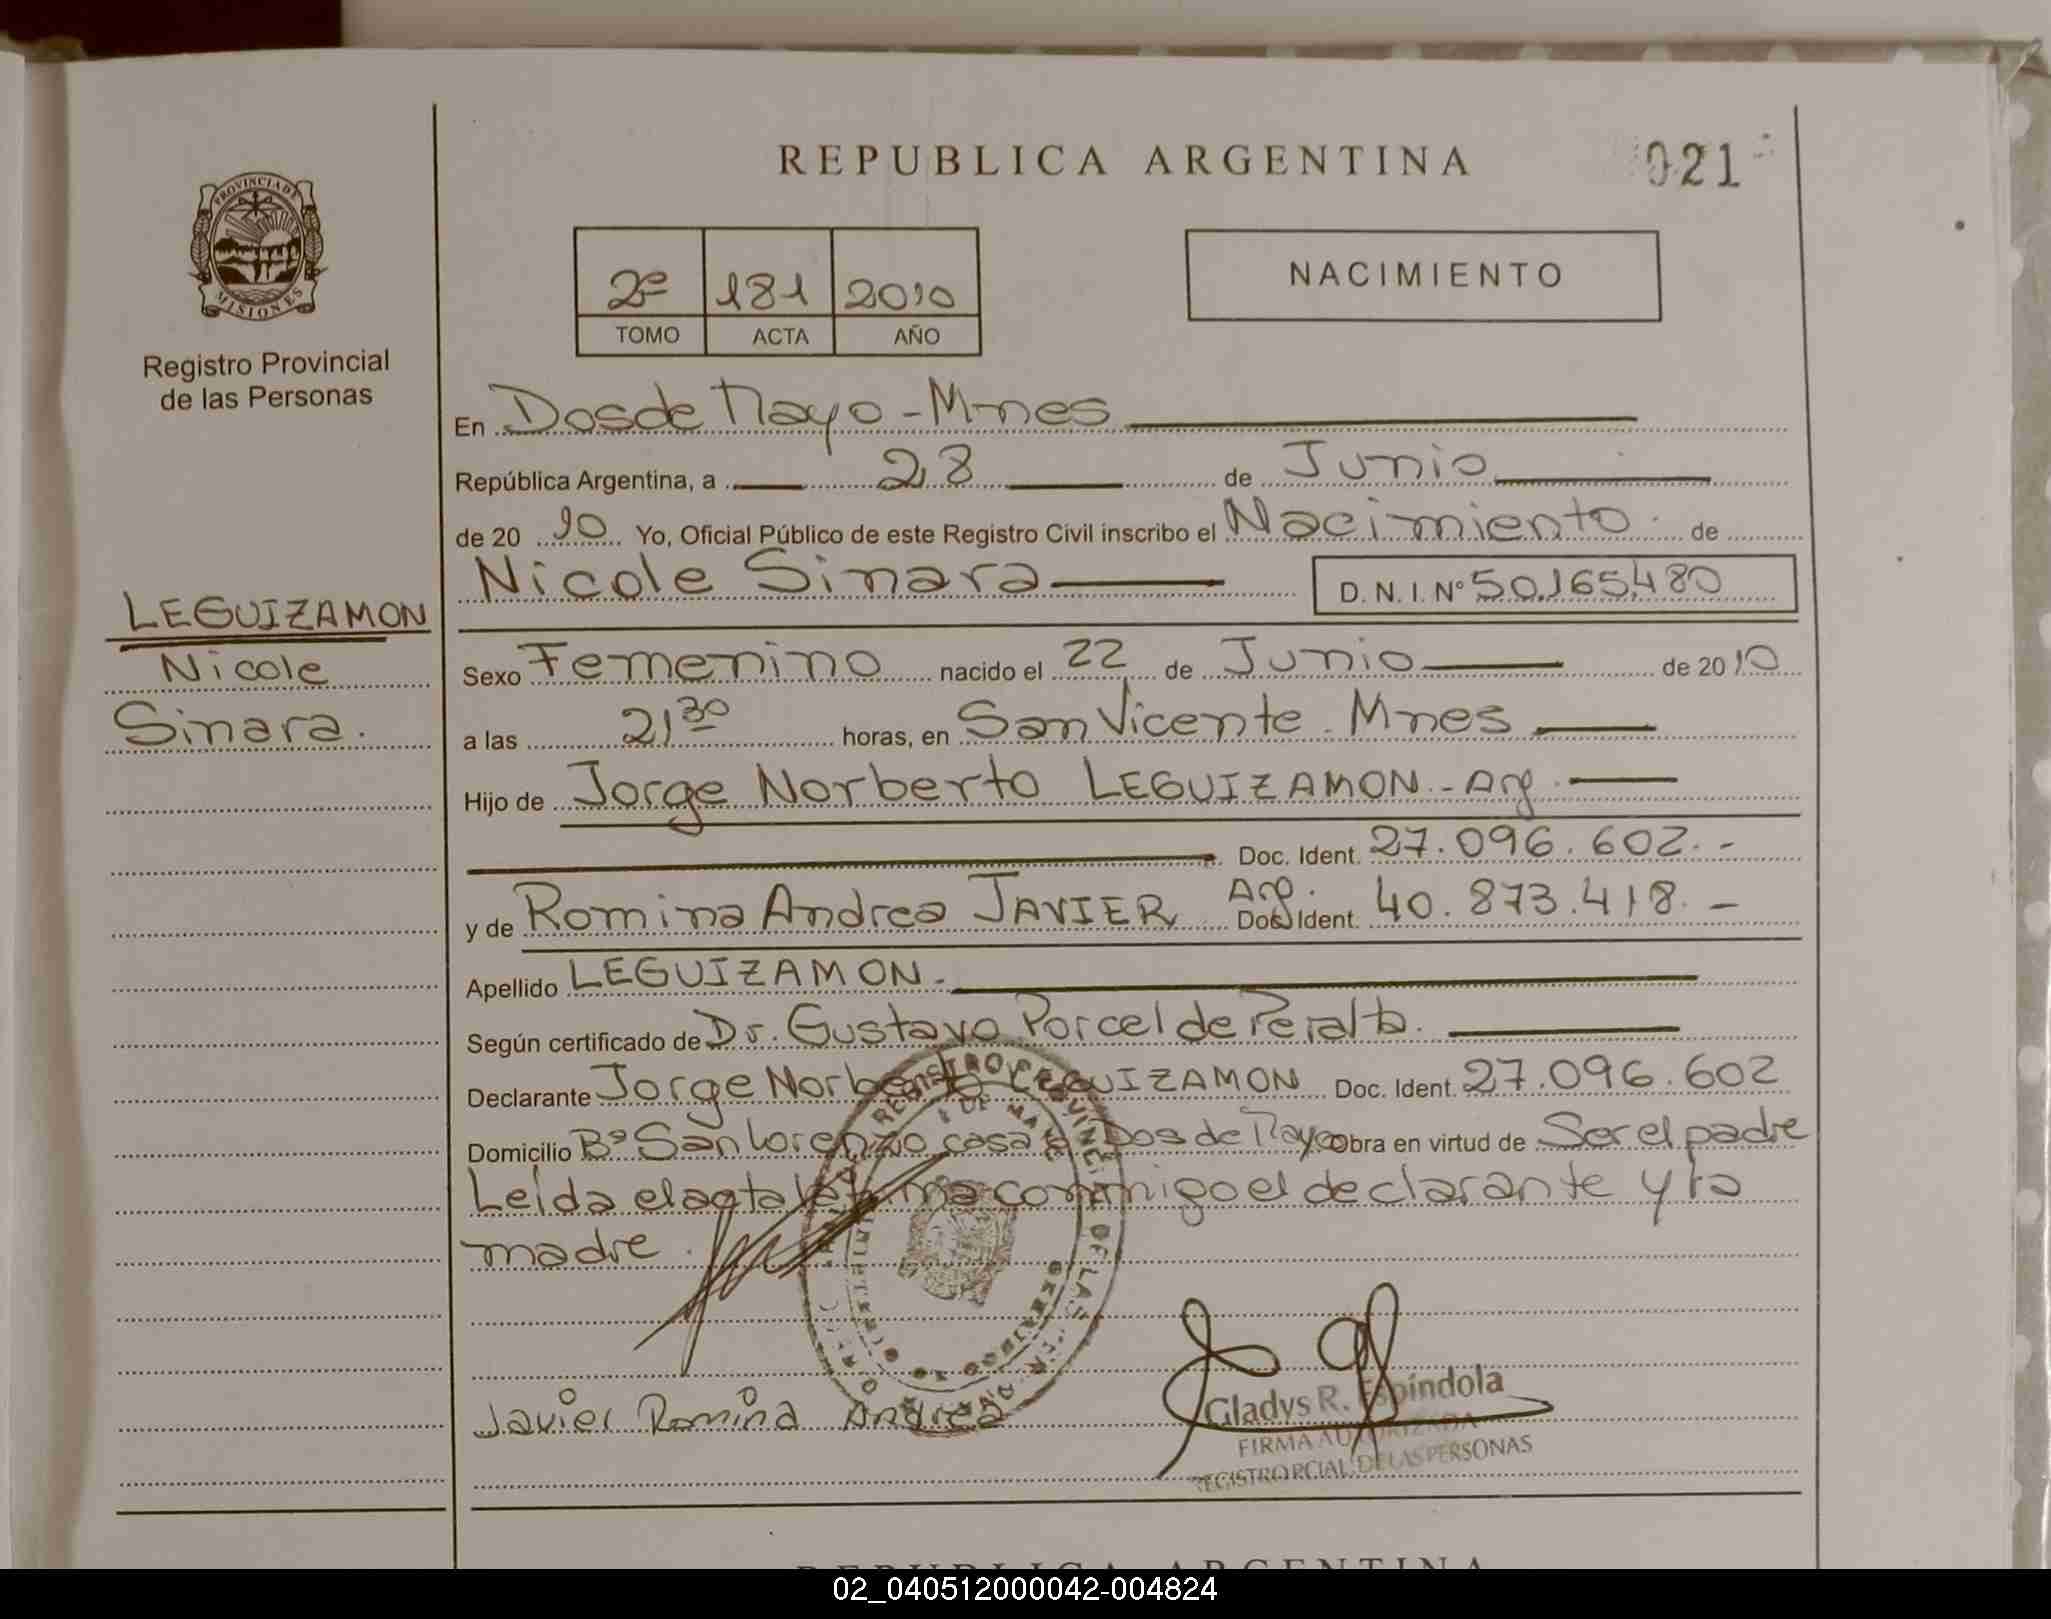 REPUBLICA ARGENTINA
021
PROVINCIA D
MISIONES
Registro Provincial
de las Personas
2º 181 2010
TOMO ACTA AÑO
NACIMIENTO
En Dos de Mayo - Mnes
República Argentina, a 28 de Junio
de 20 10 Yo, Oficial Público de este Registro Civil inscribo el Nacimiento de
Nicole Sinara D. N. I. Nº 50.165.480
LEGUIZAMON
Nicole
Sinara.
Sexo Femenino nacido el 22 de Junio de 20 10
a las 21 30 horas, en San Vicente - Mnes
Hijo de Jorge Norberto LEGUIZAMON - Arg.
Doc. Ident. 27.096.602.-
y de Romina Andrea JAVIER Arg. Doc. Ident. 40.873.418.-
Apellido LEGUIZAMON.
Según certificado de Dr. Gustavo Porcel de Peralta.
Declarante Jorge Norberto LEGUIZAMON Doc. Ident. 27.096.602
Domicilio Bº San Lorenzo casa Dos de Mayo obra en virtud de Ser el padre
Leída el acta la firma conmigo el declarante y la
madre.
Javier Romina Andrea
Gladys R. Espíndola
FIRMA AUTORIZADA
REGISTRO PCIAL. DE LAS PERSONAS
REPUBLICA ARGENTINA
02_040512000042-004824